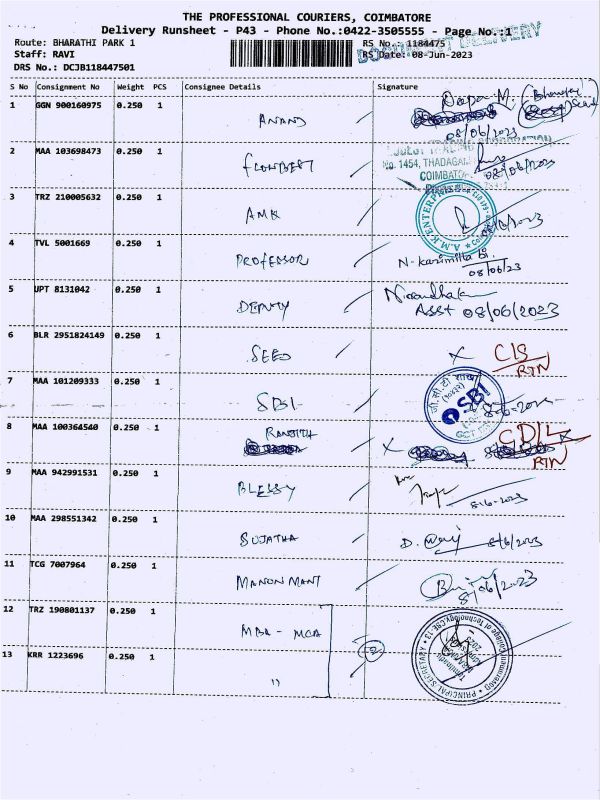 THE PROFESSIONAL COURIERS, COIMBATORE
Delivery Runsheet - P43 - Phone No.:0422-3505555 - Page No.:1
DOCUMENT DELIVERY
Route: BHARATHI PARK 1 RS No.: 1184475
Staff: RAVI RS Date: 08-Jun-2023
DRS No.: DCJB118447501
S No Consignment No Weight PCS Consignee Details Signature
1 GGN 900160975 0.250 1 ANAND Deepa M.
08/06/2023
2 MAA 103698473 0.250 1 FLOWBEST
No. 1454, THADAGAM
COIMBATORE
08/06/2023
3 TRZ 210005632 0.250 1 AMK
A.M.K ENTERPRISES
4 TVL 5001669 0.250 1 PROFESSOR N-
08/06/23
5 UPT 8131042 0.250 1 DEPUTY
Asst 08/06/2023
6 BLR 2951824149 0.250 1 SEED X C/S
RTN
7 MAA 101209333 0.250 1 SBI SBI
8 MAA 100364540 0.250 1 RANJITH X
RTN
9 MAA 942991531 0.250 1 BLESSY
8-6-2023
10 MAA 298551342 0.250 1 SUJATHA D. 8/6/2023
11 TCG 7007964 0.250 1 MANONMANI
8/06/2023
12 TRZ 190801137 0.250 1 MBA - MCA
13 KRR 1223696 0.250 1 " 2
PRINCIPAL SECRETARY
College of Technology, CBE-13